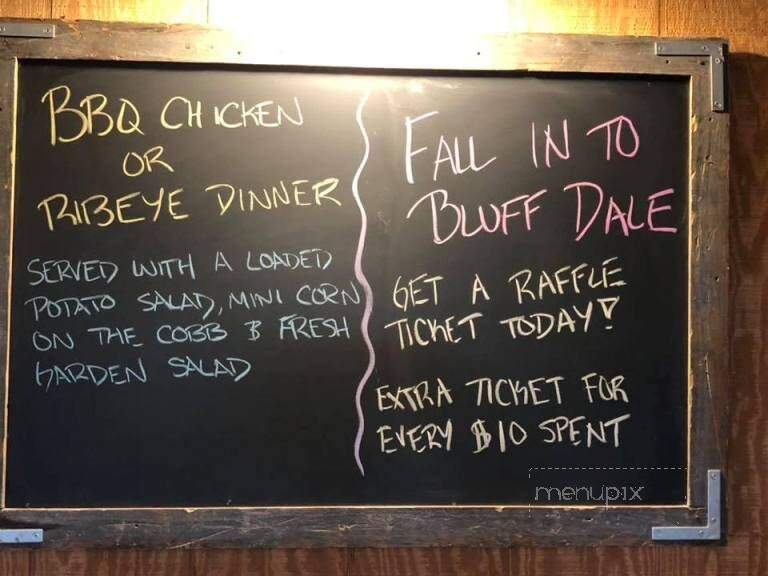 BBQ CHICKEN
OR
RIBEYE DINNER
SERVED WITH A LOADED
POTATO SALAD, MINI CORN
ON THE COBB & FRESH
GARDEN SALAD
FALL IN TO
BLUFF DALE
GET A RAFFLE
TICKET TODAY!
EXTRA TICKET FOR
EVERY $10 SPENT
menupix